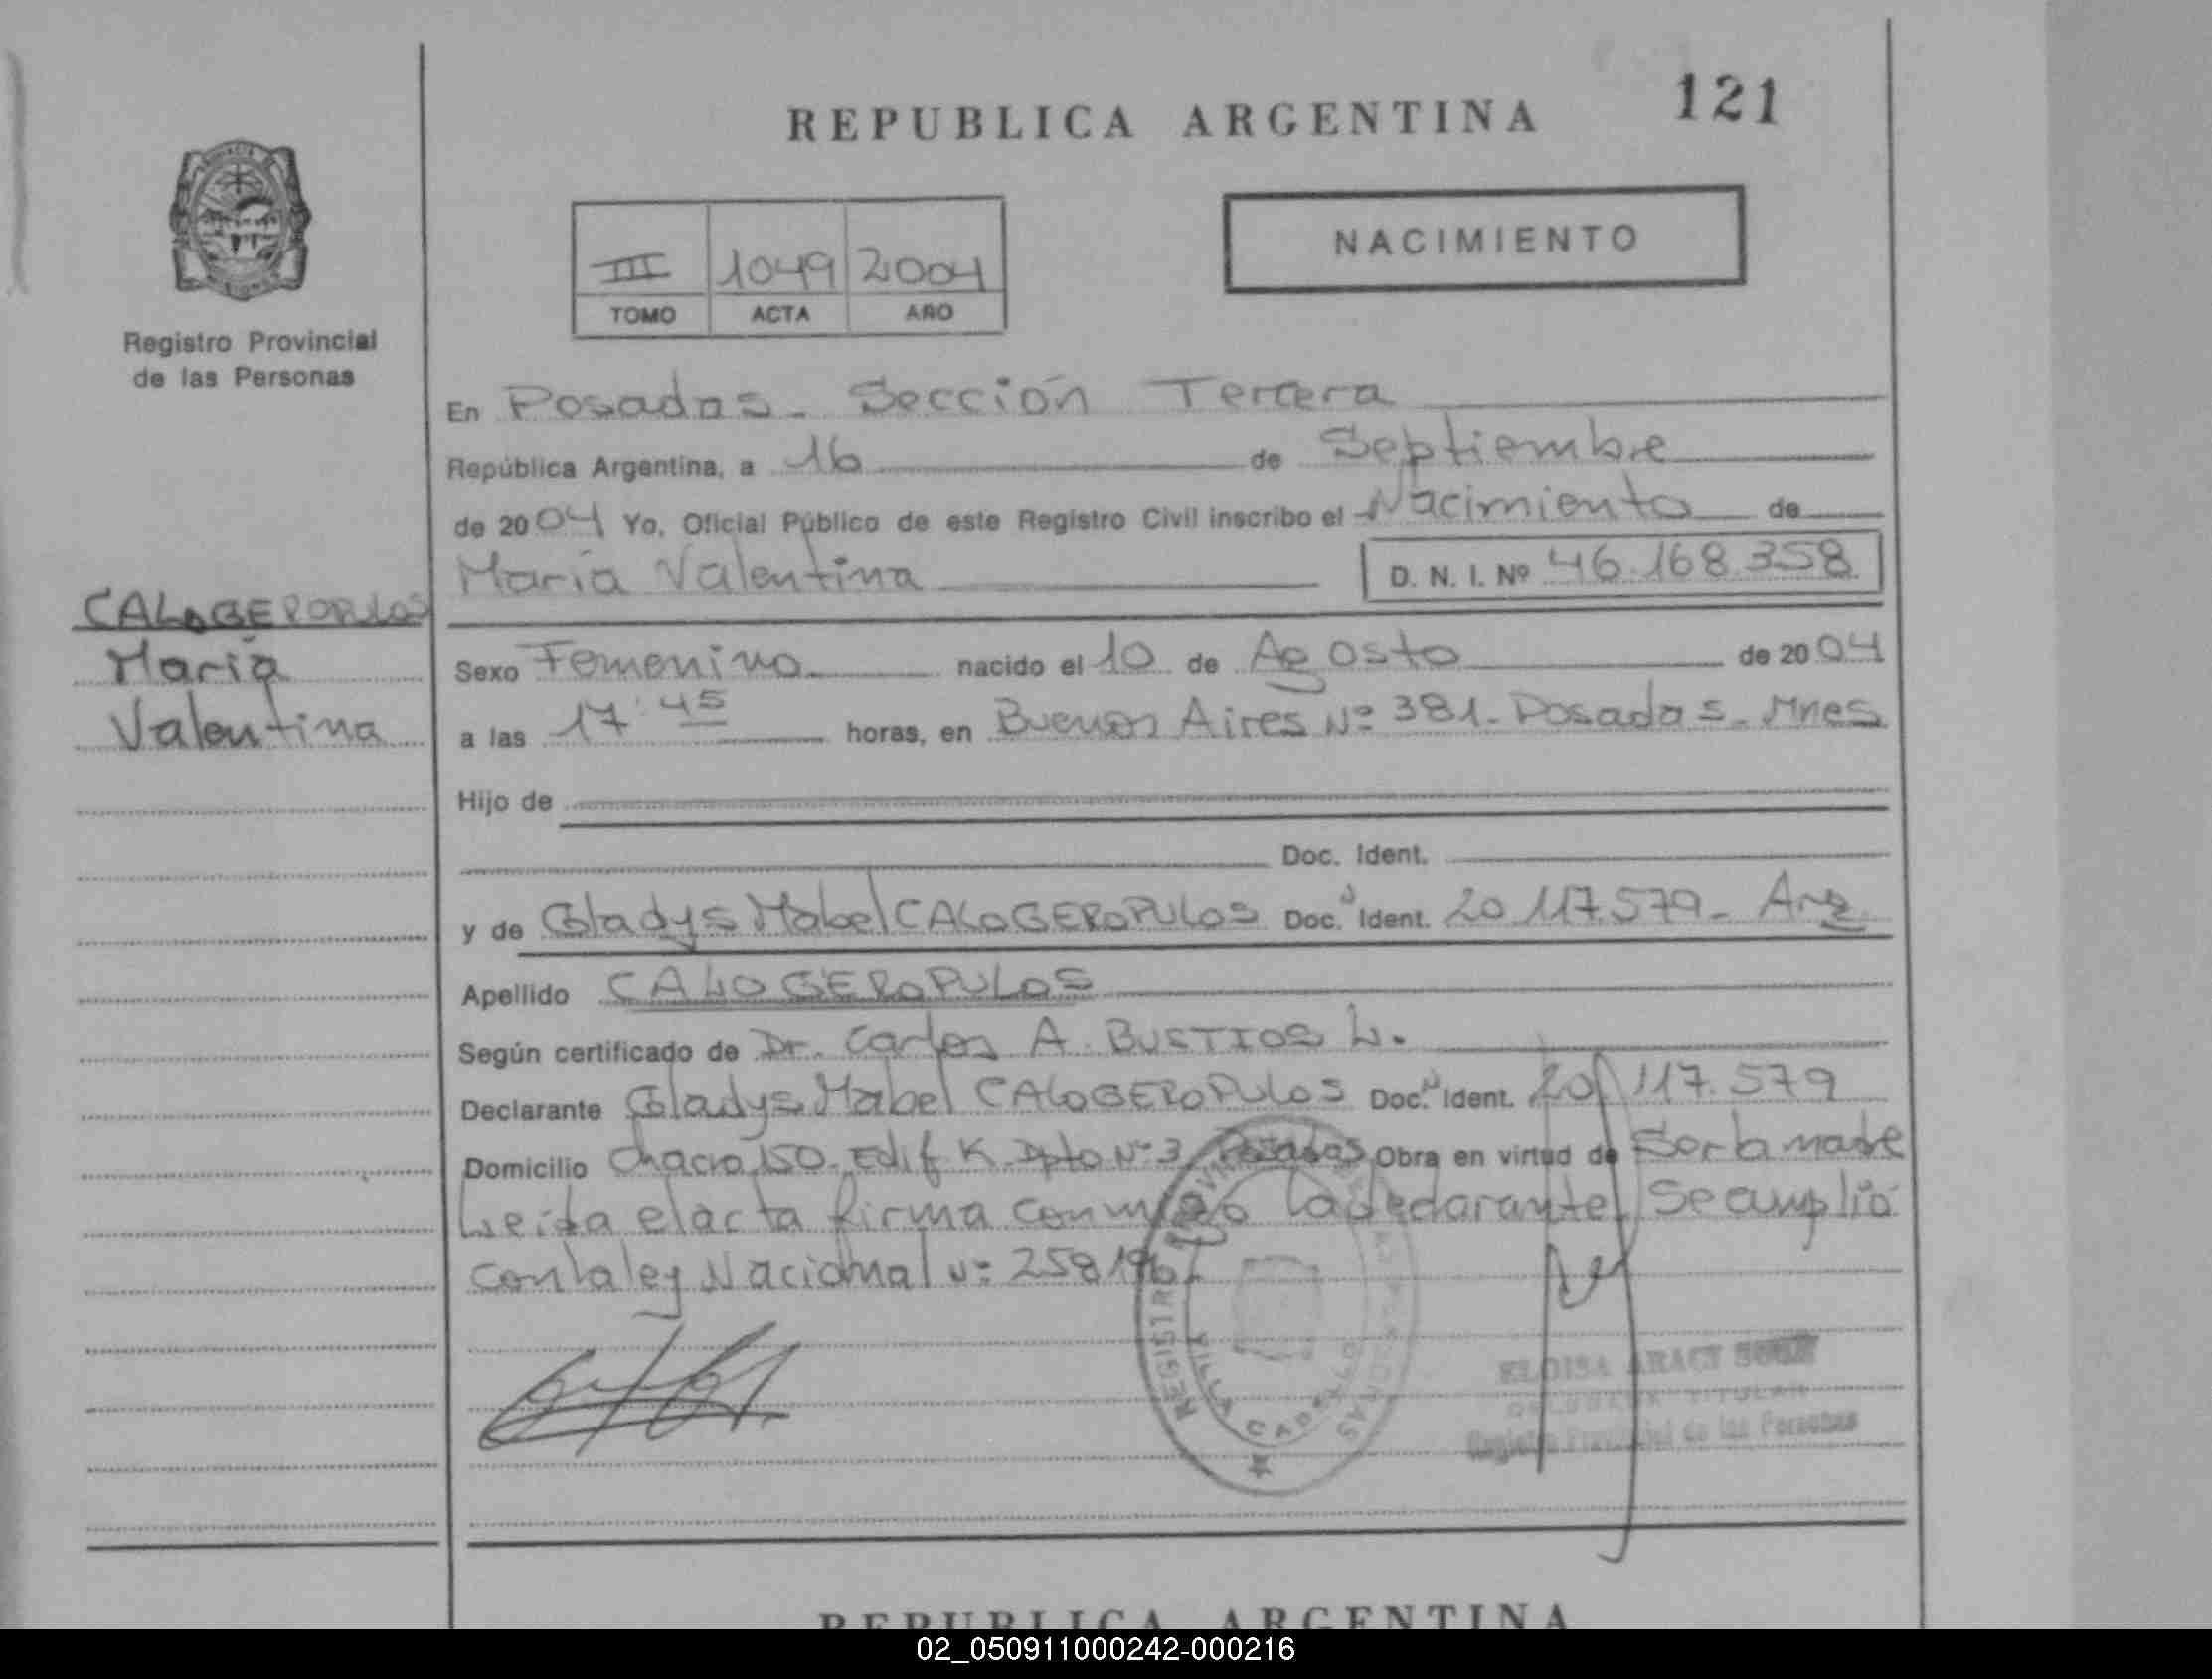 REPUBLICA ARGENTINA
121
III 1049 2004
TOMO ACTA AÑO
NACIMIENTO
Registro Provincial
de las Personas
En Posadas - Sección Tercera
República Argentina, a 16 de Septiembre
de 2004 Yo, Oficial Público de este Registro Civil inscribo el Nacimiento de
María Valentina D. N. I. Nº 46.168.358
CALOGEROPULOS
María
Valentina
Sexo Femenino nacido el 10 de Agosto de 2004
a las 17:45 horas, en Buenos Aires Nº 381 - Posadas - Mnes
Hijo de
Doc. Ident.
y de Gladys Mabel CALOGEROPULOS Doc. Ident. 20.117.579 - Arg
Apellido CALOGEROPULOS
Según certificado de Dr. Carlos A. BUSTIOS L.
Declarante Gladys Mabel CALOGEROPULOS Doc. Ident. 20.117.579
Domicilio Chaco 150 - Edif K Dpto Nº 3 Posadas Obra en virtud de Ser la madre
Leída el acta firma conmigo la declarante. Se amplió
con la ley Nacional Nº 25819
REGISTRO PROVINCIAL DE LAS PERSONAS
VILLA CABELLO
ELOISA ARACY
TITULAR
Registro Provincial de las Personas
REPUBLICA ARGENTINA
02_050911000242-000216